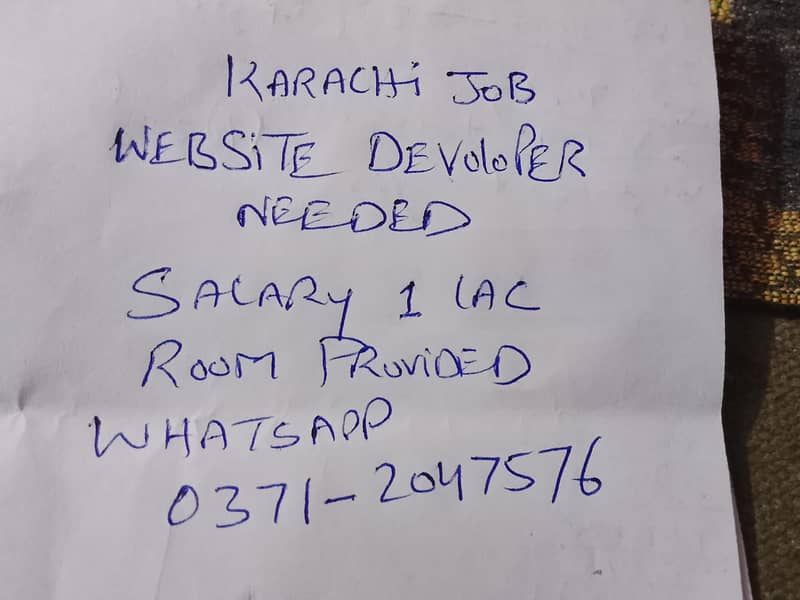 KARACHi JOB
WEBSiTE DEVOloPER
NEEDED
SALARY 1 LAC
ROOM PROViDED
WHATSAPP
0371-2047576